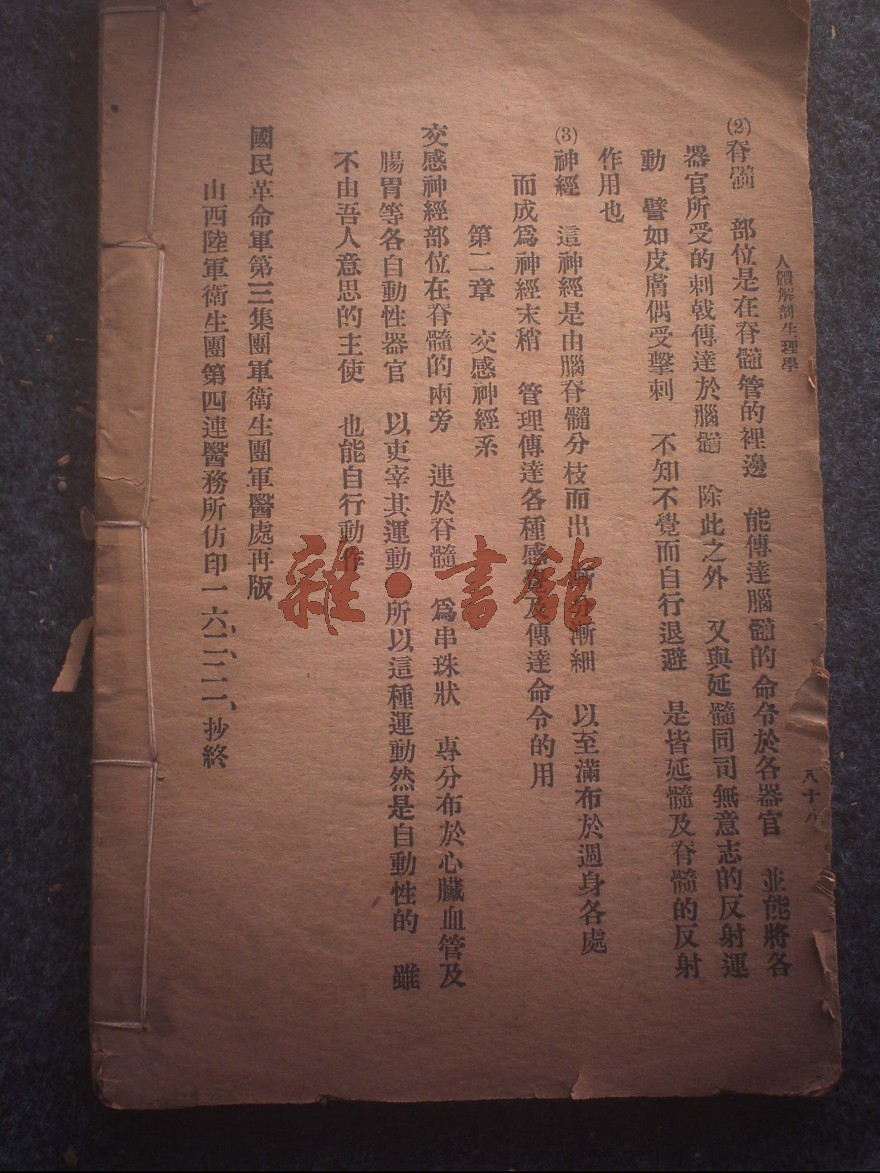 人體解剖生理學
八十八
(2)脊髓　部位是在脊髓管的裡邊　能傳達腦髓的命令於各器官　並能將各
器官所受的刺戟傳達於腦髓　除此之外　又與延髓同司無意志的反射運
動　譬如皮膚偶受擊刺　不知不覺而自行退避　是皆延髓及脊髓的反射
作用也
(3)神經　這神經是由腦脊髓分枝而出　漸分漸細　以至滿布於週身各處
而成爲神經末稍　管理傳達各種感覺及傳達命令的用
第二章　交感神經系
交感神經部位在脊髓的兩旁　連於脊髓　爲串珠狀　專分布於心臟血管及
腸胃等各自動性器官　以吏宰其運動　所以這種運動然是自動性的　雖
不由吾人意思的主使　也能自行動作
國民革命軍第三集團軍衛生團軍醫處再版
山西陸軍衛生團第四連醫務所仿印一六、二、二一、抄終
雜·書館